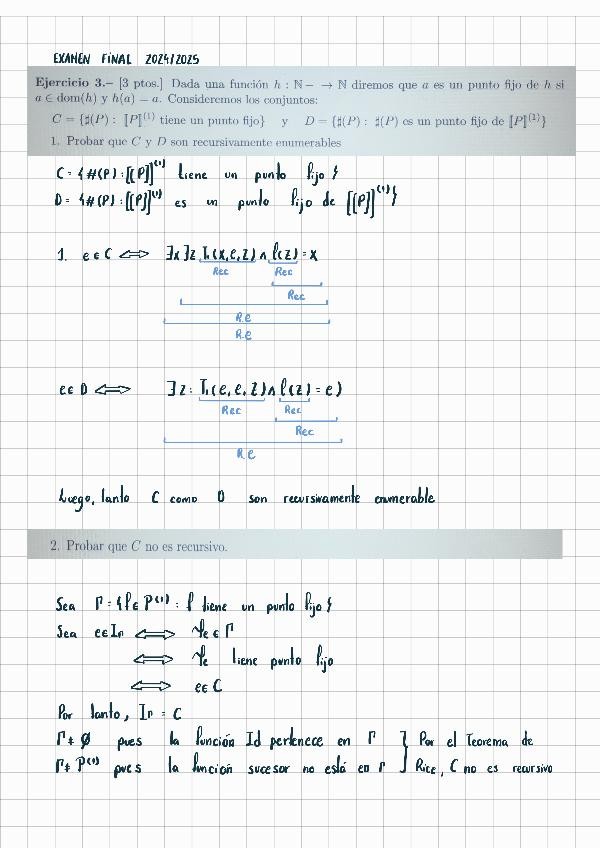 EXAMEN FINAL 2024/2025
Ejercicio 3.– [3 ptos.] Dada una función h : ℕ− → ℕ diremos que a es un punto fijo de h si
a ∈ dom(h) y h(a) = a. Consideremos los conjuntos:
C = {♯(P) : ⟦P⟧⁽¹⁾ tiene un punto fijo} y D = {♯(P) : ♯(P) es un punto fijo de ⟦P⟧⁽¹⁾}
1. Probar que C y D son recursivamente enumerables
C = {#(P) : [[P]]⁽¹⁾ tiene un punto fijo}
D = {#(P) : [[P]]⁽¹⁾ es un punto fijo de [[P]]⁽¹⁾}
1. e ∈ C ⟺ ∃x ∃z T₁(x,e,z) ∧ l(z) = x
Rec Rec
Rec
R.e
R.e
e ∈ D ⟺ ∃z : T₁(e,e,z) ∧ l(z) = e)
Rec Rec
Rec
R.e
Luego, tanto C como D son recursivamente enumerable
2. Probar que C no es recursivo.
Sea Γ = {f ∈ P⁽¹⁾ : f tiene un punto fijo}
Sea e ∈ I_Γ ⟺ φe ∈ Γ
⟺ φe tiene punto fijo
⟺ e ∈ C
Por tanto, I_Γ = C
Γ ≠ ∅ pues la función Id pertenece en Γ } Por el Teorema de
Γ ≠ P⁽¹⁾ pues la función sucesor no está en Γ } Rice, C no es recursivo